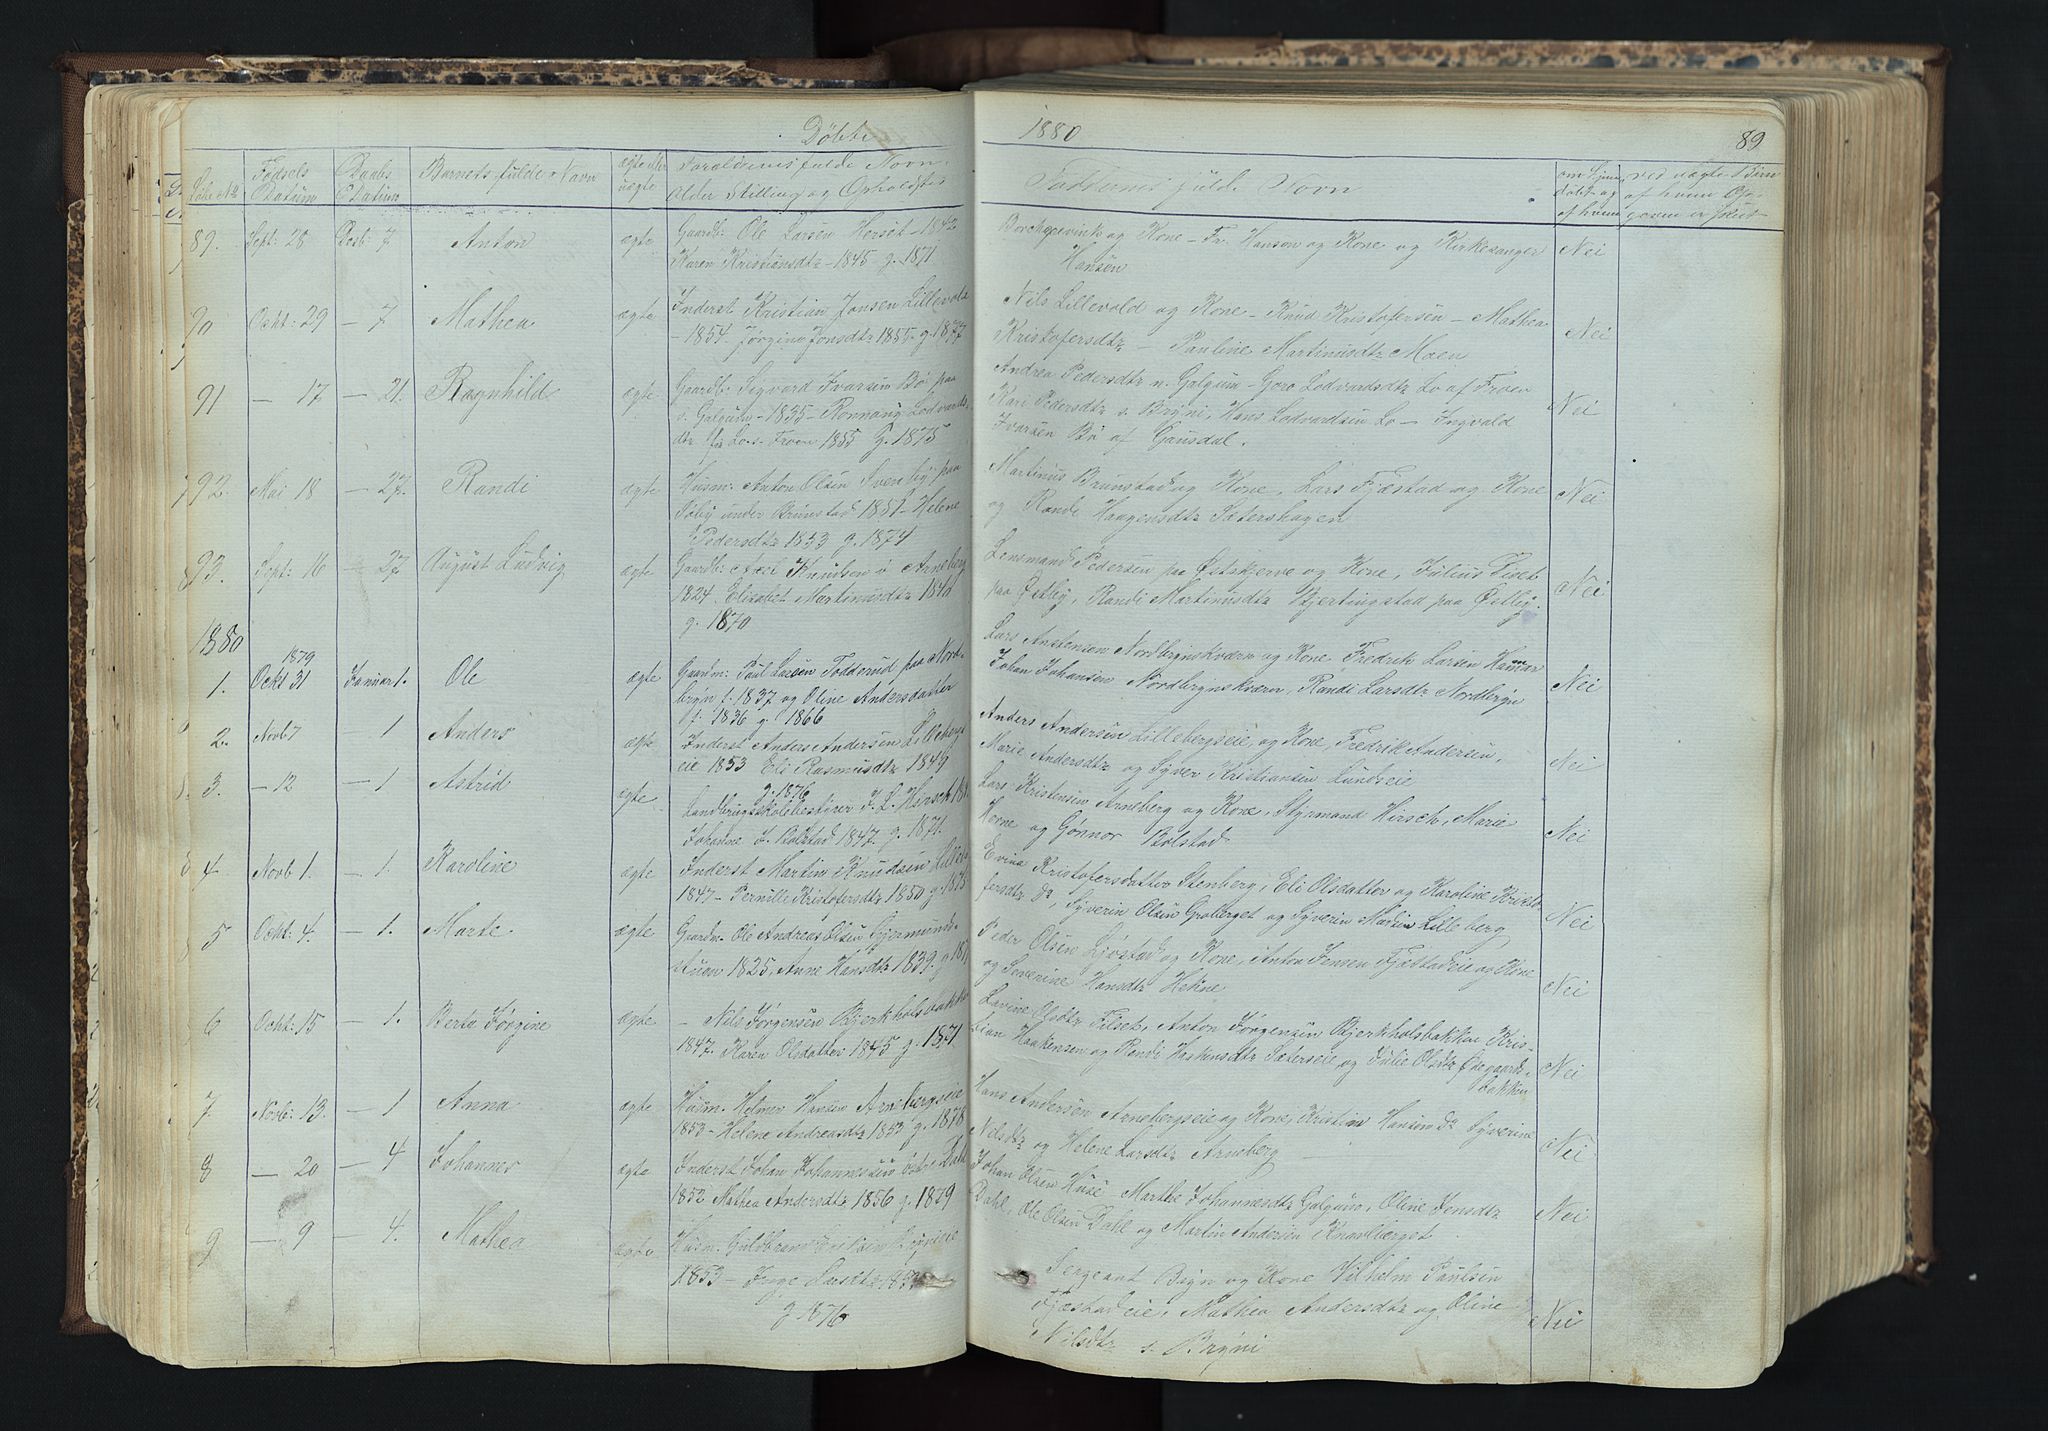 Døbte
1880
89
Løbe No
Fødsels Datum
Daabs Datum
Barnets fulde Navn
ægte el. uægte
Forældrenes fulde Navn
Alder Stilling og Opholdsted
Faddernes fulde Navn
om hjemdøbt og af hvem
ved uægte Børn af hvem Opgaven er
89. Sept: 28 Desb: 7 Anton ægte Gaardb: Ole Larsen Horset 1842
Karen Kristiansdtr 1845 g. 1871
og Kone - Fr. Hanson og Kone og Kirkesanger
Hansen
Nei
90 Ocht: 29 — 7 Mathea ægte Inderst Kristian Jonsen Lillevold
1854. Jørgine Jonsdtr 1855 g. 1877
Nils Lillevold og Kone - Knud Kristofersen - Mathea
Kristofersdtr - Pauline Martinusdtr Moen
Nei
91 — 17 — 21. Ragnhild ægte Gaardb: Sigvard Ivarsen Bø paa
s. Galgum - 1835 - Ronnaug Lodvards
dtr fra Lo s. Froen 1855 g. 1875
Andrea Pedersdtr n. Galgum - Goro Lodvardsdtr Lo af Froen
Kari Pedersdtr s. Bryni, Hans Lodvardsen Lo - Ingvald
Ivarsen Bø af Gausdal.
Nei
92. Mai 18 — 27. Randi ægte Husm: Anton Olsen Svenby paa
under Brunstad 1851 - Helene
Pedersdtr 1853 g. 1874
Martinus Brunstad og Kone, Lars Fjæstad og Kone
og Rande Haagensdtr Sætershagen
Nei
93. Sept: 16 — 27 August Ludvig ægte Gaardb: Axel Knudsen ø Arneberg
1824. Elisabet Martinusdtr 1840
g. 1870
Lensmand Pedersen paa Østskjerve og Kone, Julius Tiset
paa Østby, Randi Martinusdtr Bjertingstad paa Østby.
Nei
1880
1879
1. Ockt 31 Januar 1. Ole ægte Gaardm: Paul Larsen Todderud paa Nord-
bryn f. 1837 og Oline Andersdatter
f. 1836 g. 1866
Lars Anstensen Nordbrynskværn og Kone, Fredrik Larsen Hamar
Johan Johansen Nordbrynskværn, Randi Larsdtr Nordbryn
Nei
2. Novb 7 — 1 Anders ægte Inderst Anders Andersen Lillebergs
eie 1853 Eli Rasmusdtr 1849
g. 1876
Anders Andersen Lillebergseie, og Kone, Fredrik Andersen,
Marie Andersdtr og Syver Kristiansen Lundseie
Nei
3. — 12 — 1 Astrid ægte Landbrugsskolebestirer J. L. Hirsch
Johanne L. Bolstad 1847. g. 1871.
Lars Kristensen Arneberg og Kone, Styrmand Hirsch, Marie
Horne og Gønnor Bolstad
Nei
4. Novb 1. — 1. Karoline ægte Inderst Martin Knudsen
1847 - Pernille Kristofersdtr 1850 g. 1875
Evina Kristofersdatter Stenberg, Eli Olsdatter og Karoline Kristo
fersdtr do, Syverin Olsen Groberget og Syverin Madsen Lilleberg
Nei
5 Ocht: 4. — 1. Marte ægte Gaardm. Ole Andreas Olsen Gjermunds-
stuen 1825, Anne Hansdtr 1839.
Peder Olsen Ljøstad og Kone, Anton Jensen Fjæstadeie og Kone
og Severine Hansdtr Hekne
Nei
6 Ocht: 15 — 1. Berte Jørgine ægte - Nils Jørgensen Bjerkholsbakken
1847. Karen Olsdatter 1845 g. 1871.
Lavine Olsdtr Filset, Anton Jørgensen Bjerkholsbakken Kris-
tian Haakensen og Randi Haakensdtr Sæterseie, og Julie Olsdtr Ødegaards-
bakken
Nei
7 Novb: 13. — 1 Anna ægte Husm. Helmer Hansen Arnebergseie
1853 - Helene Andreasdtr 1853 g. 1878
Hans Andersen Arnebergseie og Kone, Kristian Hansen do Syverine
Nilsdtr og Helene Larsdtr Arneberg
Nei
8 — 20 — 4 Johannes ægte Inderst Johan Johannessen østre Dahl
1852 Mathea Andersdtr 1856 g. 1879
Johan Olsen Huse - Marthe Johannesdtr Galgum, Oline Jensdtr
Dahl, Ole Olsen Dahl og Martin Andersen Knavlberget
Nei
9 — 9 — 4. Mathea ægte Husm. Guldbrand Brynieie
1853 - Inge Larsdtr
g. 1876
Sergeant Bryn og Kone Vilhelm Paulsen
Fjæstadeie, Mathea Andersdtr og Oline
Nilsdtr s. Bryni
Nei